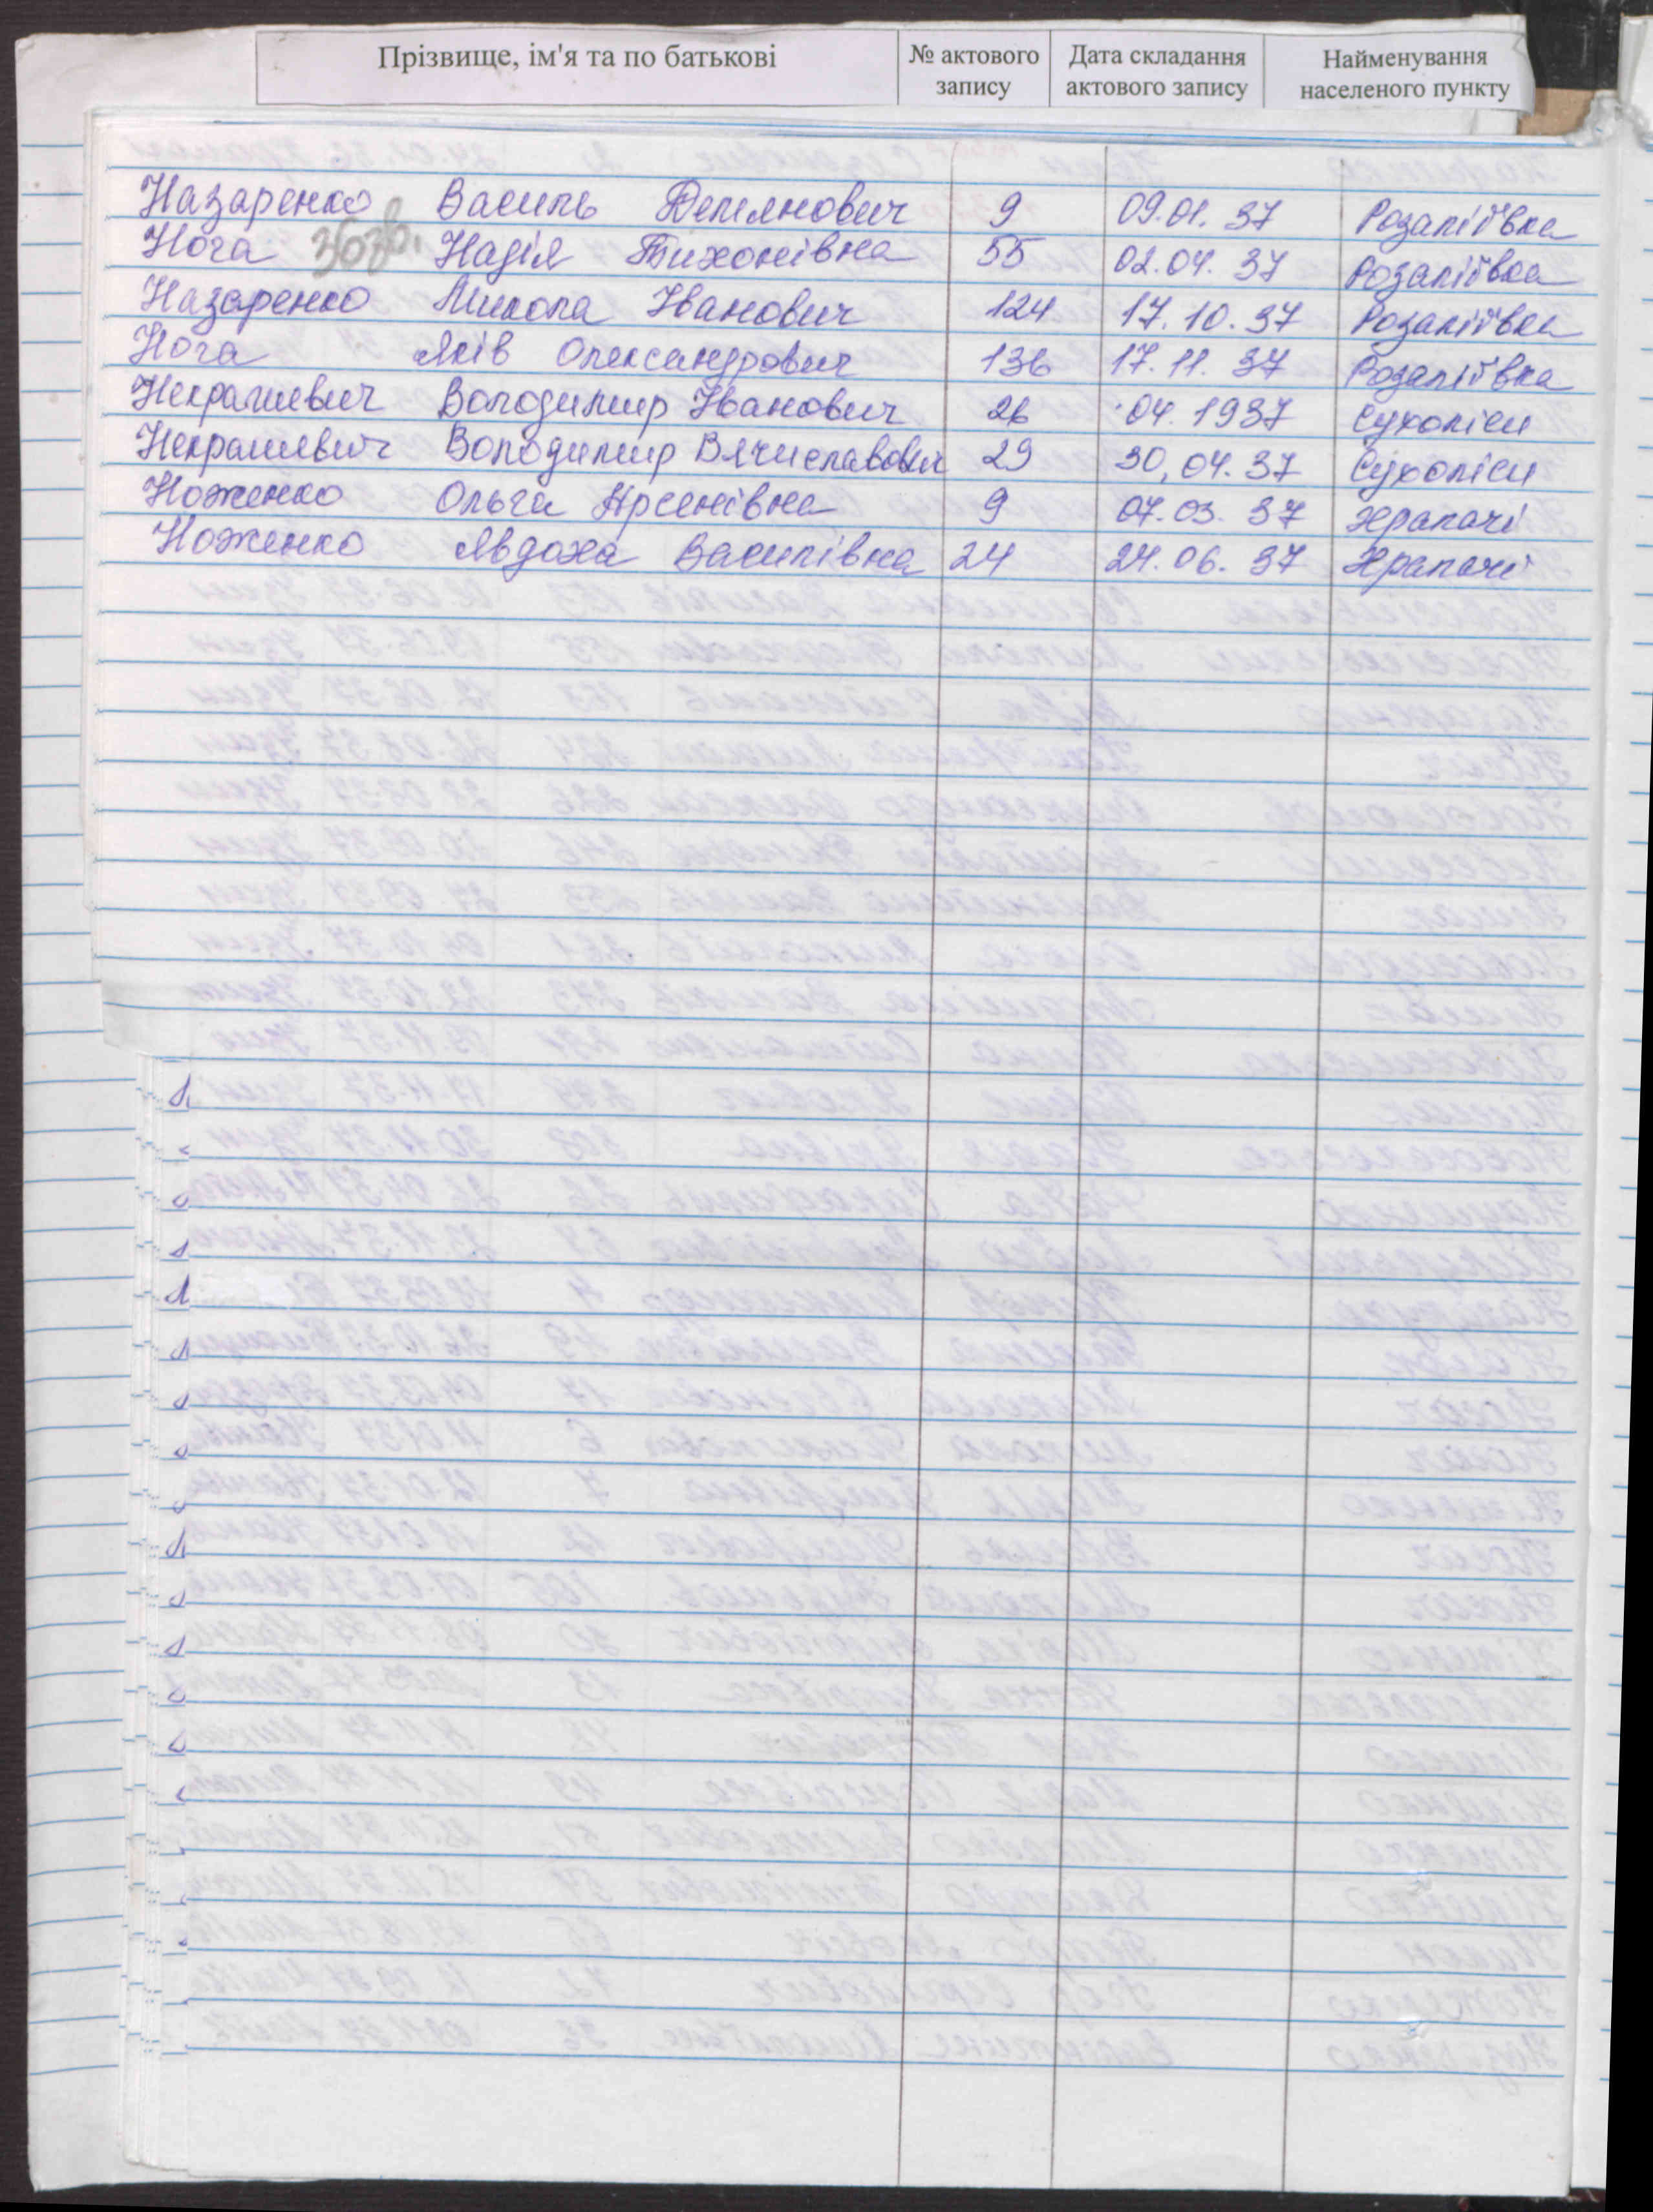 Прізвище, ім'я та по батькові № актового запису Дата складання актового запису Найменування населеного пункту
Назаренко Василь Демянович 9 09.01.37 Розаліївка
Нога Надія Тихонівна 55 02.04.37 Розаліївка
Назаренко Микола Іванович 124 17.10.37 Розаліївка
Нога Яків Олександрович 136 17.11.37 Розаліївка
Некрашевич Володимир Іванович 26 04.1937 Сухоліси
Некрашевич Володимир Вячиславович 29 30,04.37 Сухоліси
Ноженко Ольга Арсенівна 9 07.03.37 Храпачі
Ноженко Явдоха Василівна 24 24.06.37 Храпачі